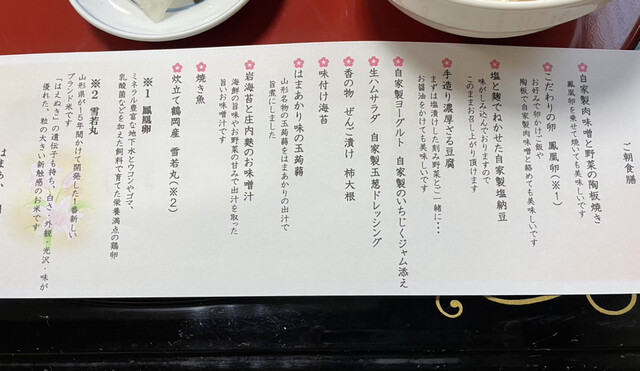 ご朝食膳
自家製肉味噌と野菜の陶板焼き
鳳凰卵を乗せて焼いても美味しいです
こだわりの卵 鳳凰卵(※1)
お好みで卵かけご飯や
陶板で自家製肉味噌と絡めても美味しいです
塩と麹でねかせた自家製塩納豆
味がしみ込んでおりますので
このままお召し上がり頂けます
手造り濃厚ざる豆腐
まずは塩漬けした刻み野菜とご一緒に・・・
お醤油をかけても美味しいです
自家製ヨーグルト 自家製のいちじくジャム添え
生ハムサラダ 自家製玉葱ドレッシング
香の物 ぜんご漬け 柿大根
味付け海苔
はまあかり味の玉蒟蒻
山形名物の玉蒟蒻をはまあかりの出汁で
旨煮にしました
岩海苔と庄内麩のお味噌汁
海鮮の旨味やお野菜の甘みで出汁を取った
旨いお味噌汁です
焼き魚
炊立て鶴岡産 雪若丸(※2)
※1 鳳凰卵
ミネラル豊富な地下水とウコンやゴマ、
乳酸菌などを加えた飼料で育てた栄養満点の鶏卵
※2 雪若丸
山形県が15年間かけて開発した1番新しい
ブランド米です
「はえぬき」の遺伝子も持ち、白さ・外観・光沢・味が
優れた、粒の大きい新触感のお米です